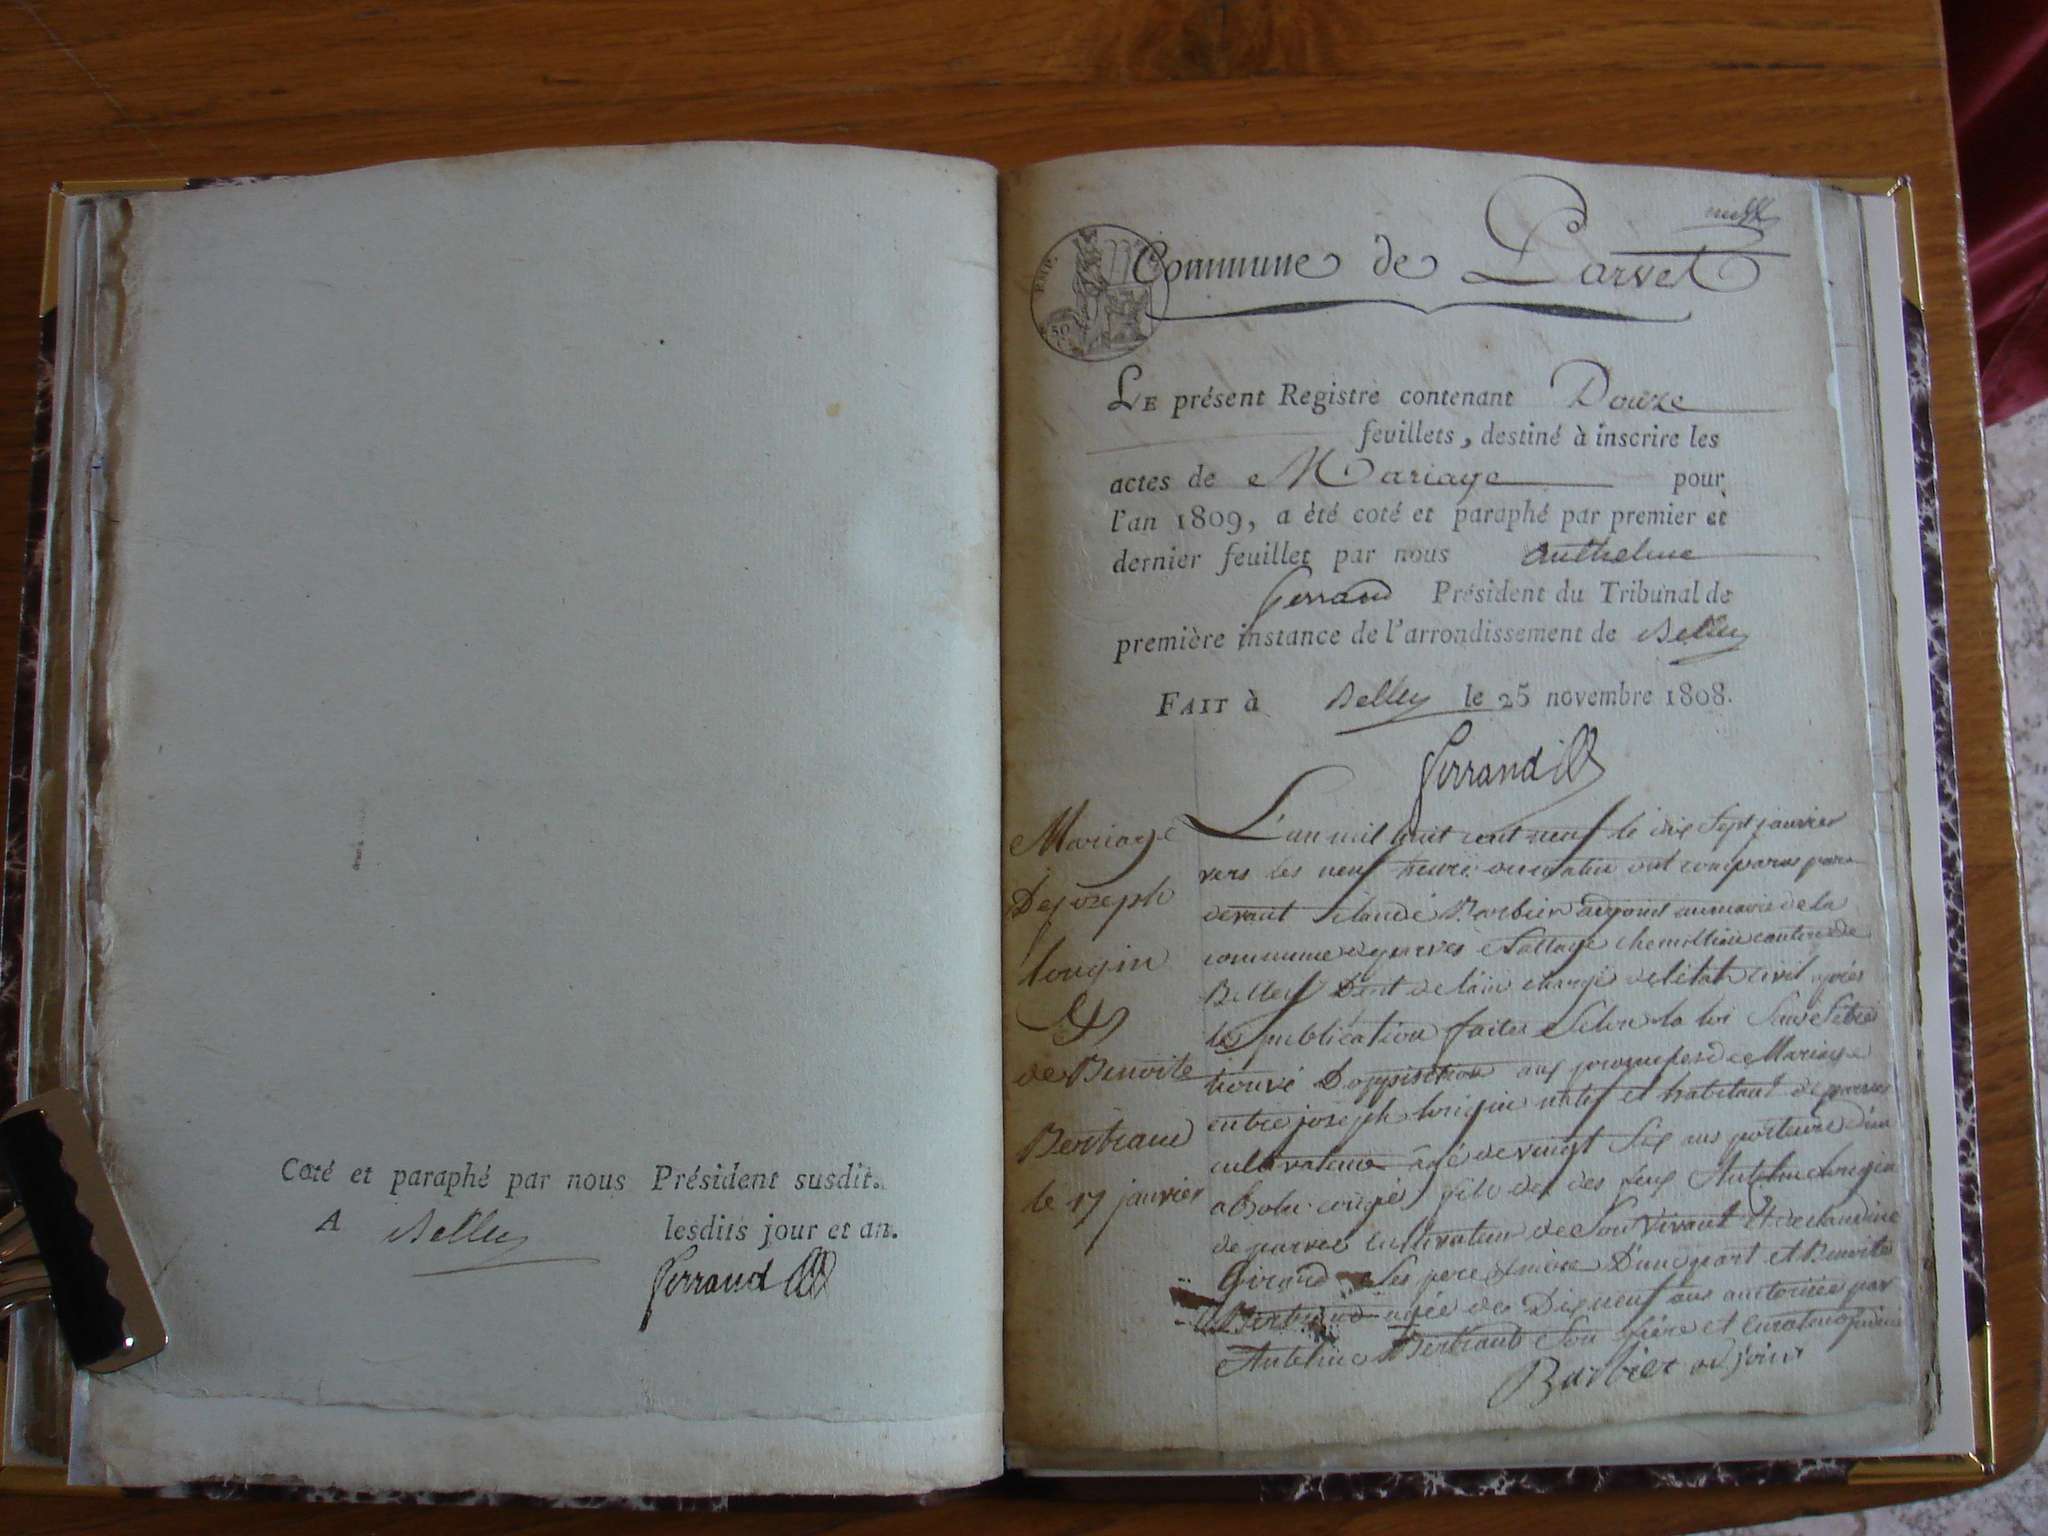 Coté et paraphé par nous Président susdit.
A Belley lesdits jour et an.
Ferrand
Commune de Parvet
EMP.
50
LE présent Registre contenant Douze
feuillets, destiné à inscrire les
actes de Mariage pour
l'an 1809, a été coté et paraphé par premier et
dernier feuillet par nous anthelme
Ferrand Président du Tribunal de
première instance de l'arrondissement de Belley
FAIT à Belley le 25 novembre 1808.
Ferrand
Mariage
De joseph
longin
&
de Benoite
Bertrand
le 17 janvier
L'an mil huit cent neuf le dix sept janvier
vers les neuf heures du matin ont comparus par
devant Claude Barbier adjoint au maire de la
commune de parves canton de
Belley Dpt de l'ain chargé de l'état civil après
les publication faites selon la loi
trouvé D'opposition aux promesses de Mariage
entre joseph longin natif et habitant de parves
cultivateur âgé de vingt six ans porteur d'un
absolu congés fils de des feux Antelme longin
de parves cultivateur de son vivant Et de claudine
Girand ses pere & mere D'une part et Benoite
Bertrand agée de Dix neuf ans autorisée par
Antelme Bertrand Son frère et curateur
Barbier adjoint